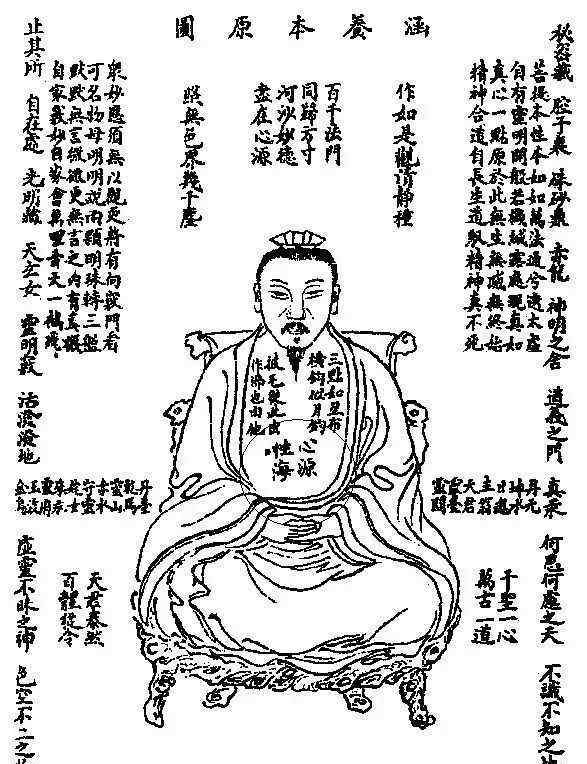 涵養本原圖
秘密藏 腔子裏 硃砂鼎 赤龍 神明之舍 道義之門 真汞 何思何慮之天 不識不知之
菩提本性本如如萬法通兮透太虛
自有靈明開般若機緘露處現真如
真心一點原於此無生無滅無終始
精神合道自長生道馭精神真不死
作如是觀清靜種
百千法門
同歸方寸
河沙妙德
盡在心源
照無色界幾千塵
眾妙應須無以觀更將有向竅門看
可名物母明明說兩顆明珠轉三盤
默默無言微微更無言之內有玄機
自家我妙自家會萬里青天一鶴飛
止其所 自在處 光明藏 天玄女 靈明竅 活潑潑地 虛靈不昧之神 色空不二之
三點如星布
橫鉤似月
披毛從此出
作佛也由他
心源
性海
丹元
日魂
主翁
天君
靈臺
靈關
丹臺
龍馬
靈山
赤水
守靈
姹女
金烏
千聖一心
萬古一道
天君泰然
百體從令